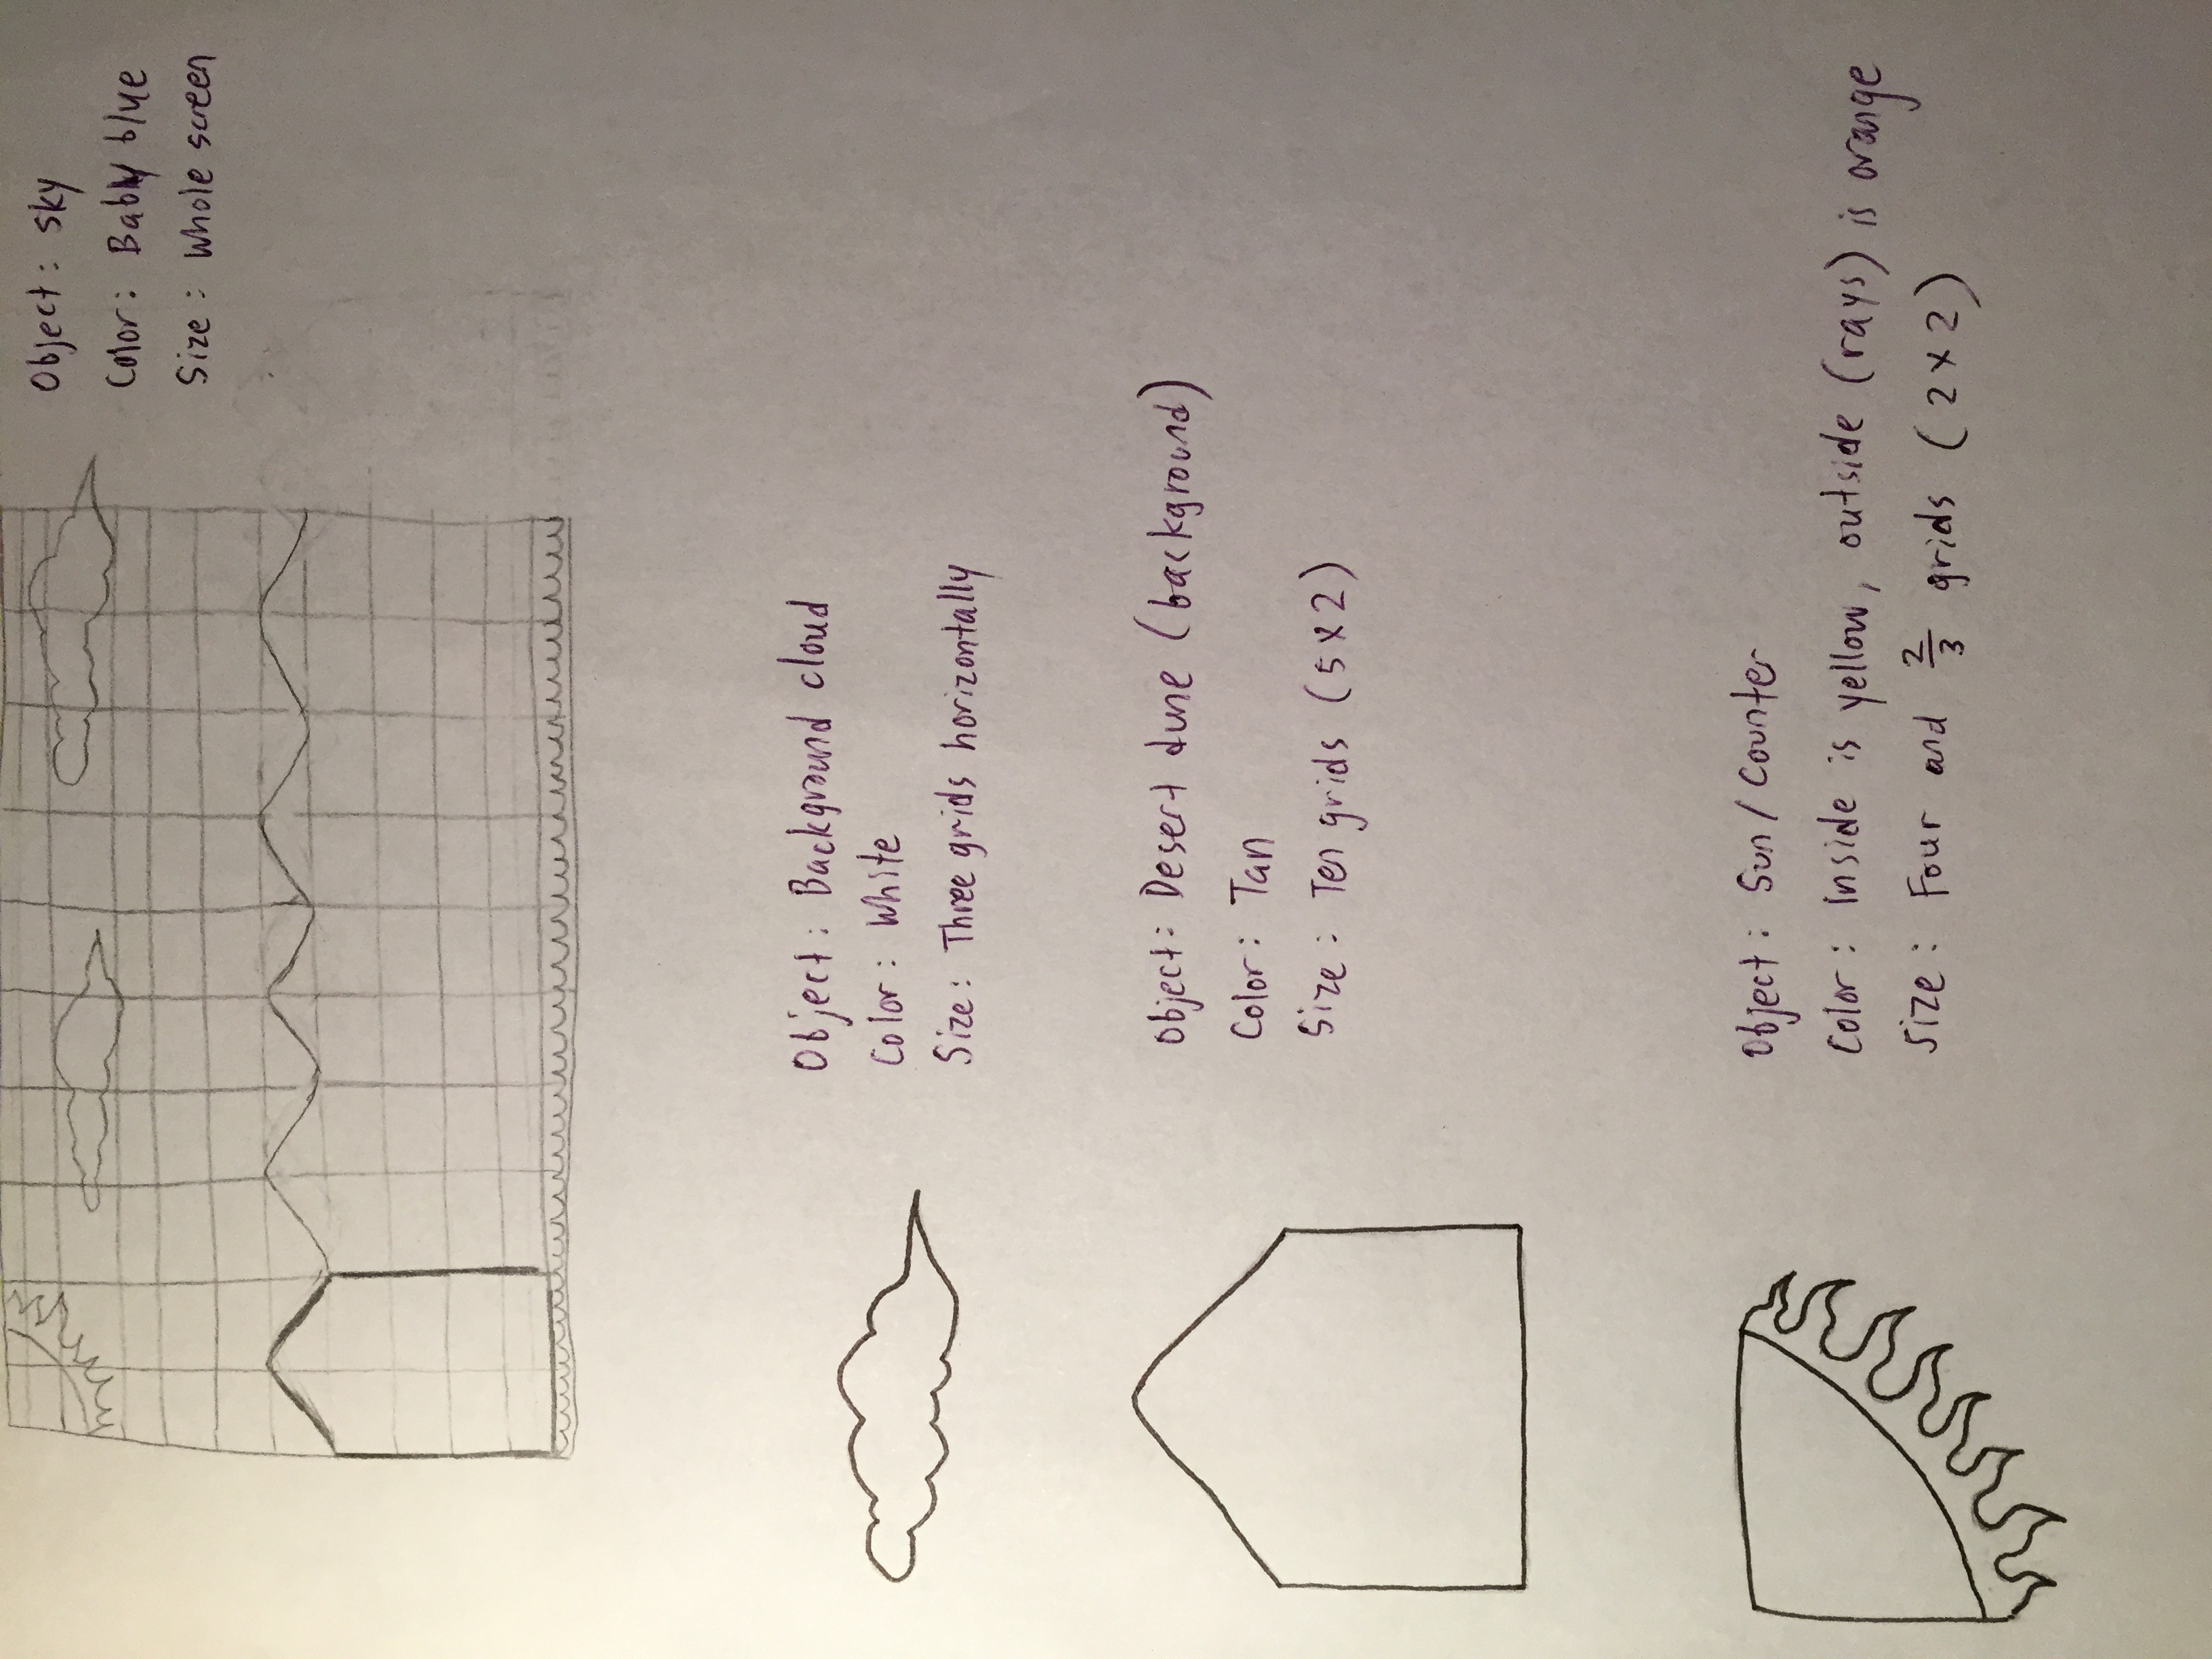 Object: Sky
Color: Baby blue
Size: Whole screen
Object: Background cloud
Color: White
Size: Three grids horizontally
Object: Desert dune (background)
Color: Tan
Size: Ten grids (5x2)
Object: Sun/Counter
Color: Inside is yellow, outside (rays) is orange
Size: Four and 2/3 grids (2x2)